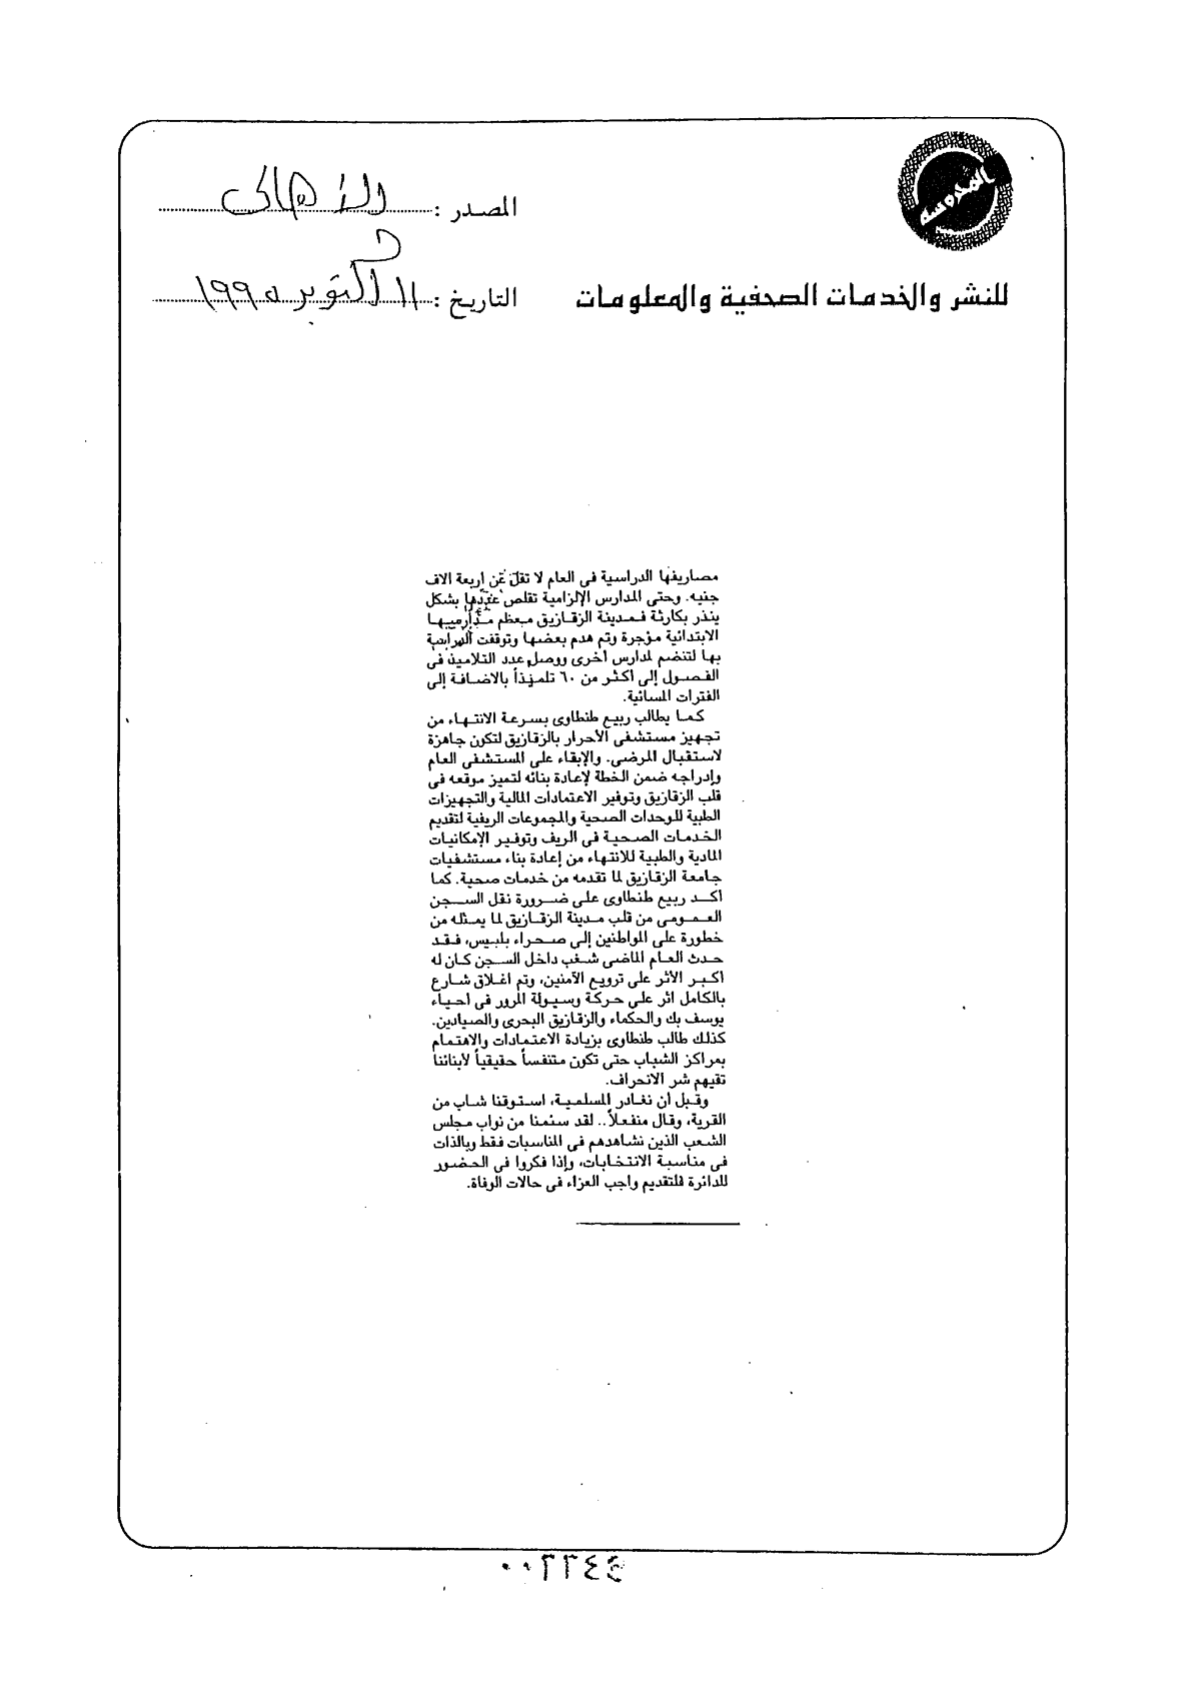 المحروسة
المصدر : الأهالى
للنشر والخدمات الصحفية والمعلومات
التاريخ : ١١ أكتوبر ١٩٩٥
مصاريفها الدراسية فى العام لا تقل عن أربعة الاف
جنيه. وحتى المدارس الإلزامية تقلص عددها بشكل
ينذر بكارثة فمدينة الزقازيق معظم مدارسها
الابتدائية مؤجرة وتم هدم بعضها وتوقفت الدراسة
بها لتنضم لمدارس أخرى ووصل عدد التلاميذ فى
الفصول إلى أكثر من ٦٠ تلميذاً بالاضافة إلى
الفترات المسائية.
كما يطالب ربيع طنطاوى بسرعة الانتهاء من
تجهيز مستشفى الأحرار بالزقازيق لتكون جاهزة
لاستقبال المرضى. والإبقاء على المستشفى العام
وإدراجه ضمن الخطة لإعادة بنائه لتميز موقعه فى
قلب الزقازيق وتوفير الاعتمادات المالية والتجهيزات
الطبية للوحدات الصحية والمجموعات الريفية لتقديم
الخدمات الصحية فى الريف وتوفير الإمكانيات
المادية والطبية للانتهاء من إعادة بناء مستشفيات
جامعة الزقازيق لما تقدمه من خدمات صحية. كما
أكد ربيع طنطاوى على ضرورة نقل السجن
العمومى من قلب مدينة الزقازيق لما يمثله من
خطورة على المواطنين إلى صحراء بلبيس، فقد
حدث العام الماضى شغب داخل السجن كان له
أكبر الأثر على ترويع الآمنين، وتم اغلاق شارع
بالكامل اثر على حركة وسيولة المرور فى أحياء
يوسف بك والحكماء والزقازيق البحرى والصيادين.
كذلك طالب طنطاوى بزيادة الاعتمادات والاهتمام
بمراكز الشباب حتى تكون متنفساً حقيقياً لأبنائنا
تقيهم شر الانحراف.
وقبل أن نغادر المسلمية، استوقنا شاب من
القرية، وقال منفعلاً.. لقد سئمنا من نواب مجلس
الشعب الذين نشاهدهم فى المناسبات فقط وبالذات
فى مناسبة الانتخابات، وإذا فكروا فى الحضور
للدائرة فلتقديم واجب العزاء فى حالات الوفاة.
٠٠٢٢٤٤